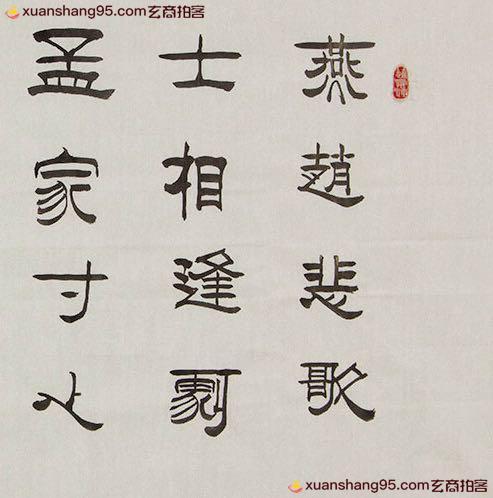 xuanshang95.com玄商拍客
燕趙悲歌
士相逢劇
孟家寸心
xuanshang95.com玄商拍客